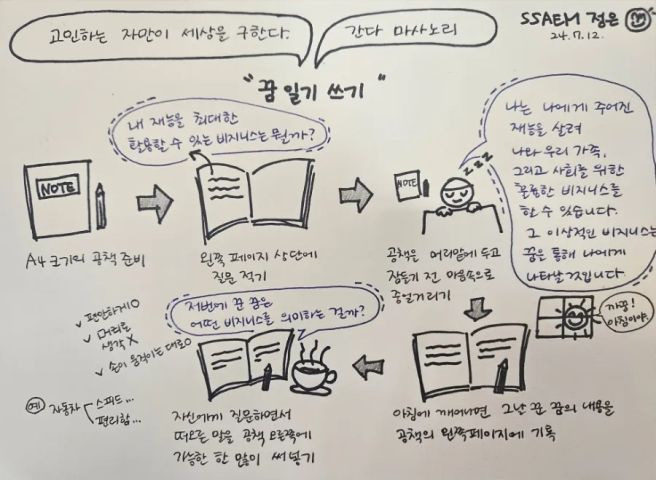 고민하는 자만이 세상을 구한다.
간다 마사노리
SSAEM 정은
24.7.12.
"꿈 일기 쓰기"
내 재능을 최대한
활용할 수 있는 비지니스는 뭘까?
NOTE
A4 크기의 공책 준비
왼쪽 페이지 상단에
질문 적기
NOTE
zzz
공책은 머리맡에 두고
잠들기 전 마음속으로
중얼거리기
나는 나에게 주어진
재능을 살려
나와 우리 가족,
그리고 사회를 위한
훌륭한 비지니스를
할 수 있습니다.
그 이상적인 비지니스는
꿈을 통해 나에게
나타날 것입니다.
까꿍!
아침이야.
아침에 깨어나면, 그날 꾼 꿈의 내용을
공책의 왼쪽페이지에 기록
저번에 꾼 꿈은
어떤 비지니스를 의미하는 걸까?
자신에게 질문하면서
떠오른 말을 공책 오른쪽에
가능한 한 많이 써넣기
✓ 편안하게 O
✓ 머리로
생각 X
✓ 손이 움직이는 대로 O
예 자동차
스피드...
편리함...